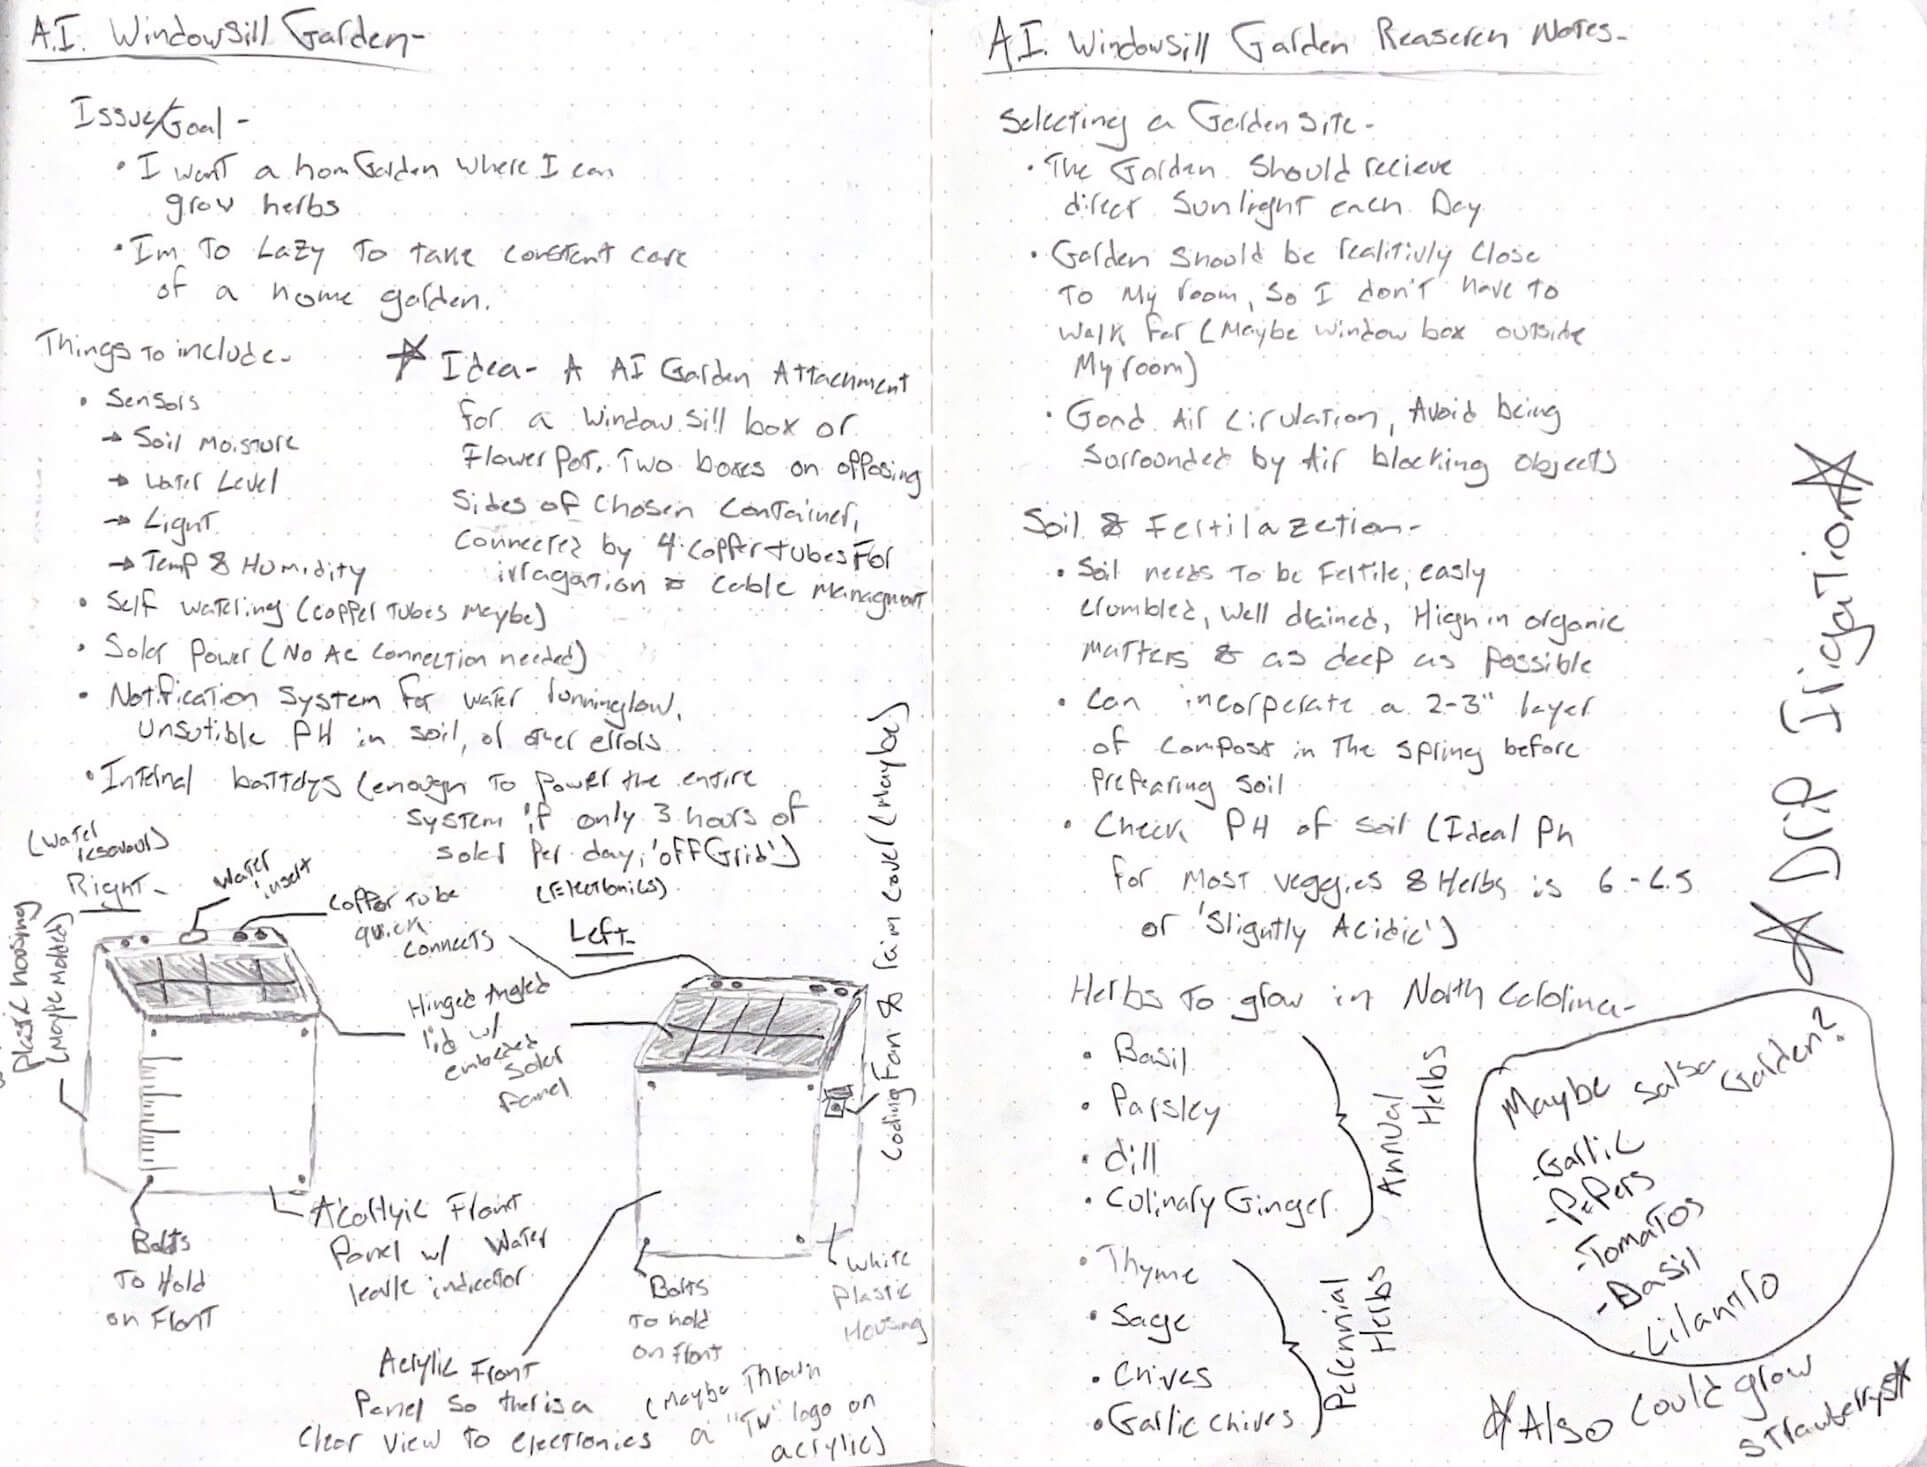 A.I. Windowsill Garden-
Issue/Goal -
• I want a hom Garden where I can
grow herbs
• Im To Lazy To take constent care
of a home garden.
Things To include-
• Sensors
→ Soil Moisture
→ Water Level
→ Light
→ Temp & Humidity
• Self watering (copper tubes Maybe)
• Soler Power (No AC connection needed)
• Notification System for water runninglow,
Unsutible PH in soil, or other errors
• Internal battdys (enough to power the entire
system if only 3 hours of
soler per day, 'off Grid')
☆ Idea- A AI Garden Attachment
for a Window Sill box or
Flower Pot. Two boxes on opposing
Sides of Chosen Container,
Connected by 4 copper tubes For
irragation & cable managment
(water
resavour)
Right-
Water
insert
Copper tube
quick
connects
(Electronics)
Left-
Plastic housing
(Maybe Molded)
Hinged Angled
lid w/
embeded
Soler
Panel
Cooling Fan & rain cover (Maybe)
Bolts
To Hold
on Front
Acrylic Front
Panel w/ Water
levle indicator
Bolts
To hold
on Front
White
Plastic
Housing
Acrylic Front
Panel So ther is a
Clear View to electronics
(Maybe Thrown
a "TW" logo on
acrylic)
A.I. Windowsill Garden Reaserch Notes-
Selecting a Garden Site-
• The Garden Should recieve
direct Sunlight each Day
• Garden Should be realitivly Close
To My room, So I don't have to
walk far (Maybe window box outside
My room)
• Good Air Circulation, Avoid being
Surrounded by Air blocking Objects
Soil & Fertilazetion-
• Soil needs To be Fertile, easly
crumbled, Well drained, High in organic
matters & as deep as possible
• Can incorperate a 2-3" layer
of compost in The spring before
prepearing soil
• Check PH of soil (Ideal Ph
for most veggies & Herbs is 6-6.5
or 'Slightly Acidic')
☆ Drip Irigation ☆
Herbs To grow in North Carolina-
• Basil
• Parsley
• dill
• Culinary Ginger
Annual
Herbs
• Thyme
• Sage
• Chives
• Garlic chives
Perennial
Herbs
Maybe Salsa Garden?
-Garlic
-Pepers
-Tomatos
-Basil
-Cilantro
☆ Also Could grow
strawberrys☆